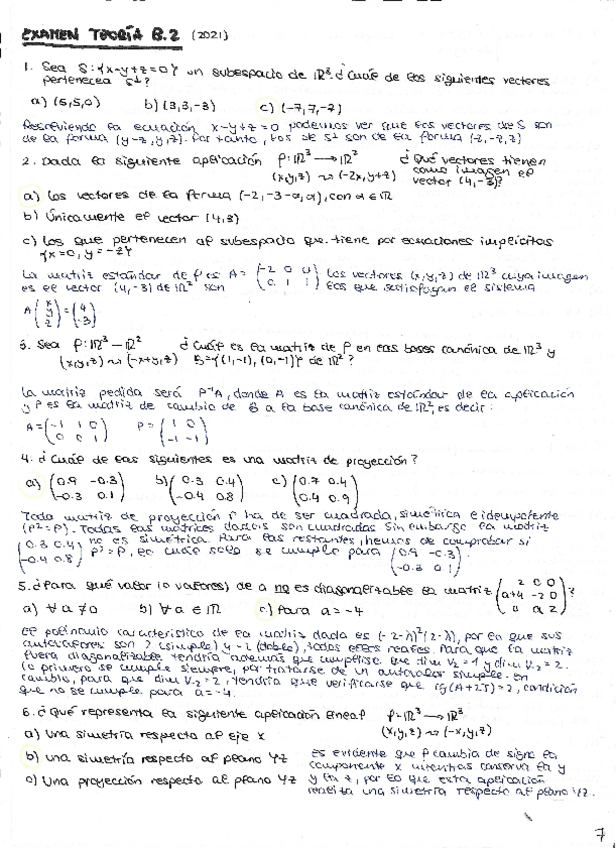 EXAMEN TEORÍA B.2 (2021)
1. Sea S:{x-y+z=0} un subespacio de ℝ³. ¿Cuál de los siguientes vectores
pertenece a S⊥?
a) (5,5,0) b) (3,3,-3) c) (-7,7,-7)
Reescribiendo la ecuación x-y+z=0 podemos ver que los vectores de S son
de la forma (y-z,y,z). Por tanto, los de S⊥ son de la forma (z,-z,z)
2. Dada la siguiente aplicación f:ℝ³→ℝ² ¿Qué vectores tienen
(x,y,z)⤳(-2x,y+z) como imagen el
vector (4,-3)?
a) Los vectores de la forma (-2,-3-α,α), con α∈ℝ
b) Únicamente el vector (4,3)
c) Los que pertenecen al subespacio que tiene por ecuaciones implícitas
{x=0, y=-z}
La matriz estándar de f es A = (-2 0 0 / 0 1 1) Los vectores (x,y,z) de ℝ³ cuya imagen
es el vector (4,-3) de ℝ² son los que satisfagan el sistema
A (x y z) = (4 -3)
3. Sea f:ℝ³→ℝ² ¿Cuál es la matriz de f en las bases canónica de ℝ³ y
(x,y,z)⤳(-x+y,z) B={(1,-1),(0,-1)} de ℝ²?
La matriz pedida será P⁻¹A, donde A es la matriz estándar de la aplicación
y P es la matriz de cambio de B a la base canónica de ℝ², es decir:
A = (-1 1 0 / 0 0 1) P = (1 0 / -1 -1)
4. ¿Cuál de las siguientes es una matriz de proyección?
a) (0.9 -0.3 / -0.3 0.1) b) (0.3 0.4 / -0.4 0.8) c) (0.7 0.4 / 0.4 0.9)
Toda matriz de proyección P ha de ser cuadrada, simétrica e idempotente
(P²=P). Todas las matrices dadas son cuadradas Sin embargo la matriz
(0.3 0.4 / -0.4 0.8) no es simétrica. Para las restantes, hemos de comprobar si
P²=P, lo cual solo se cumple para (0.9 -0.3 / -0.3 0.1)
5. ¿Para qué valor (o valores) de a no es diagonalizable la matriz (2 0 0 / a+4 -2 0 / 0 a 2)?
a) ∀a≠0 b) ∀a∈ℝ c) Para a=-4
El polinomio característico de la matriz dada es (-2-λ)²(2-λ), por lo que sus
autovalores son 2 (simple) y -2 (doble), todos ellos reales. Para que la matriz
fuera diagonalizable tendría además que cumplirse que dim V₂=1 y dim V₋₂=2.
Lo primero se cumple siempre, por tratarse de un autovalor simple. En
cambio, para que dim V₋₂=2, tendría que verificarse que rg(A+2I)=2, condición
que no se cumple para a=-4.
6. ¿Qué representa la siguiente aplicación lineal f:ℝ³→ℝ³
(x,y,z)⤳(-x,y,z)
a) Una simetría respecto al eje X
b) Una simetría respecto al plano YZ
c) Una proyección respecto al plano YZ
Es evidente que f cambia de signo la
componente x mientras conserva la y
y la z, por lo que esta aplicación
realiza una simetría respecto al plano YZ.
7